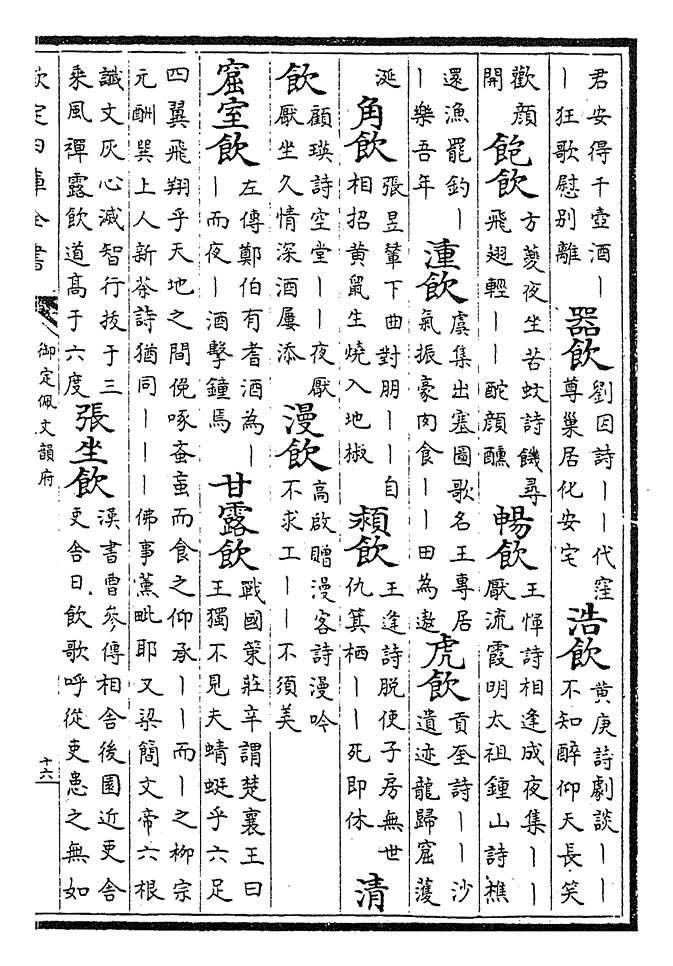 君安得千壺酒丨
丨狂歌慰別離
器飲
劉因詩丨丨代窪
尊巢居化安宅
浩飲
黄庚詩劇談丨丨
不知醉仰天長笑
歡顔
開
飽飲
方夔夜坐苦蚊詩饑尋
飛翅輕丨丨酡顔醺
暢飲
王惲詩相逢成夜集丨丨
厭流霞明太祖鍾山詩樵
還漁罷釣丨
丨樂吾年
湩飲
虞集出塞圖歌名王專居
氣振豪肉食丨丨田為遨
虎飲
貢奎詩丨丨沙
遺迹龍歸窟濩
涎
角飲
張昱輦下曲對朋丨丨自
相招黄鼠生燒入地椒
潁飲
王逢詩脱使子房無世
仇箕栖丨丨死即休
清
飲
顧瑛詩空堂丨丨夜厭
厭坐久情深酒屢添
漫飲
高啟贈漫客詩漫吟
不求工丨丨不須美
窟室飲
左傳鄭伯有耆酒為丨
丨而夜丨酒擊鐘焉
甘露飲
戰國策莊辛謂楚襄王曰
王獨不見夫蜻蜓乎六足
四翼飛翔乎天地之間俛啄蚉䖟而食之仰承丨丨而丨之柳宗
元酬巽上人新茶詩猶同丨丨丨佛事薰毗耶又梁簡文帝六根
讖文灰心滅智行拔于三
乘風禪露飲道高于六度
張坐飲
漢書曹參傳相舍後園近吏舍
吏舍日飲歌呼從吏患之無如
欽定四庫全書
御定佩文韻府
十六